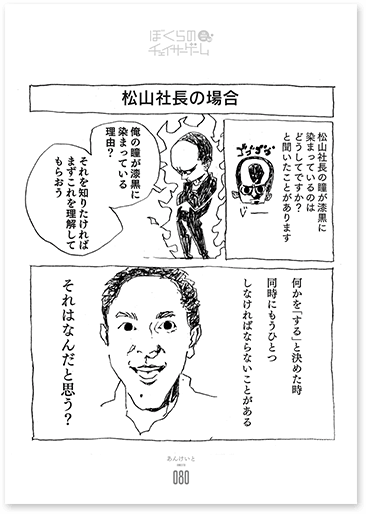 ぼくらの
チェイサーゲーム
松山社長の場合
松山社長の瞳が漆黒に
染まっているのは
どうしてですか?
と聞いたことがあります
ゴゴゴゴ
俺の瞳が漆黒に
染まっている
理由?
それを知りたければ
まずこれを理解して
もらおう
何かを「する」と決めた時
同時にもうひとつ
しなければならないことがある
それはなんだと思う?
あんけいと
080